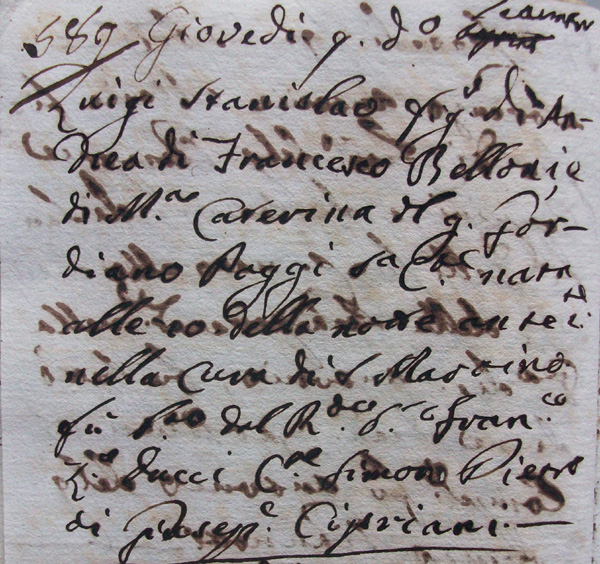 589 Giovedi p. do
Luigi Stanislao fig° di An-
drea di Francesco Bellonie
di M.a Caterina del q. Gor-
diano Poggi sa C.e nato
alle 10 della notte antec.
nella Cura di S. Martino
fu b.to dal R.do S.r Fran.co
Ducci C.re Simon Pietro
di Giusep.e Cipriani